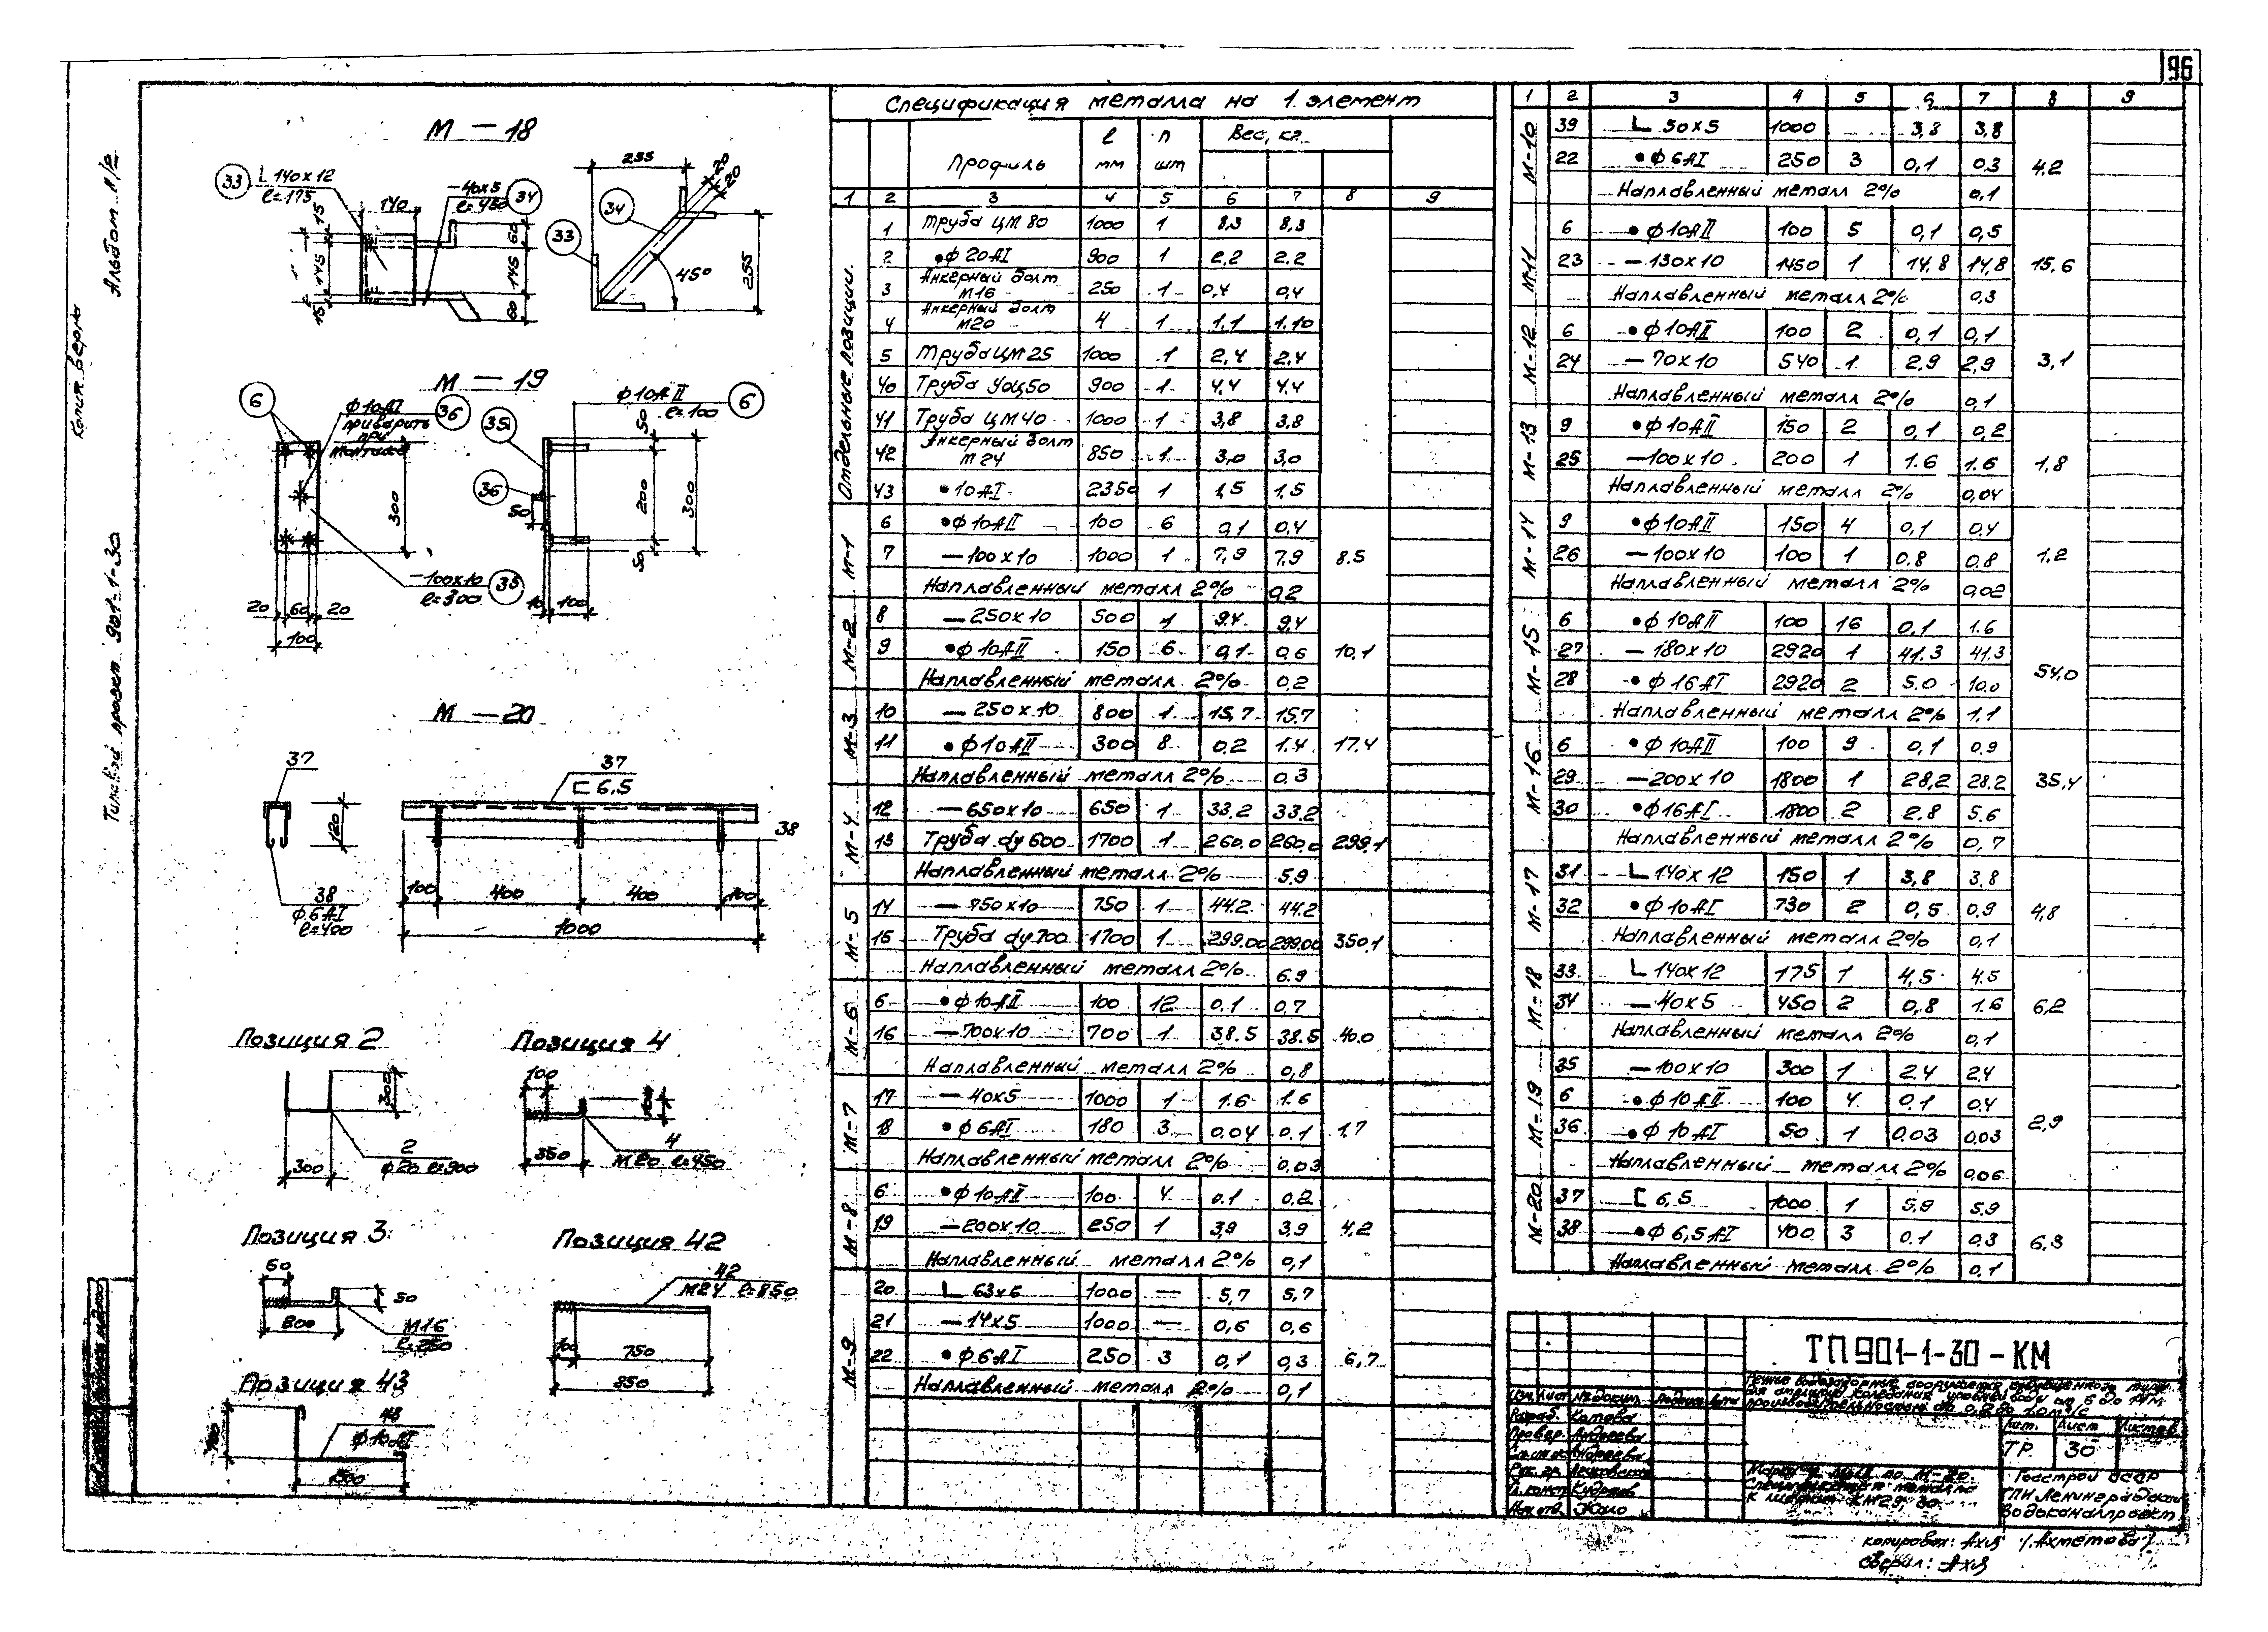 96
Альбом II/2
Типовой проект 901-1-30
М-18
33
L 140x12
l=175
140
-40x5
l=450
34
15
145
15
60
145
60
255
20
20
34
33
45°
255
М-19
6
Ф10AI
приварить
при
монтаже
36
300
-100x10
l=300
35
20 60 20
100
35
36
Ф10AII
l=100
6
50
200
300
50
50
10 100
М-20
37
120
38
Ф6AI
l=400
37
[ 6,5
38
100 400 400 100
1000
Позиция 2
300
2
Ф20 l=900
300
Позиция 4
100
100
350
4
М20 l=450
Позиция 3
60
50
200
М16
l=250
Позиция 42
42
М24 l=850
100 750
850
Позиция 43
43
Ф10AI
Спецификация металла на 1 элемент
Профиль
l мм
n шт
Вес, кг
1 2 3 4 5 6 7 8 9
Отдельные позиции.
1 Труба ЦМ 80 1000 1 8,3 8,3
2 •Ф 20AI 900 1 2,2 2,2
3 Анкерный болт М16 250 1 0,4 0,4
4 Анкерный болт М20 4 1 1,1 1.10
5 Труба ЦМ 25 1000 1 2,4 2,4
40 Труба Уоц50 900 1 4,4 4,4
41 Труба ЦМ 40 1000 1 3,8 3,8
42 Анкерный болт М24 850 1 3,0 3,0
43 •10AI 2350 1 1,5 1,5
М-1
6 •Ф10AII 100 6 0,1 0,4
7 —100x10 1000 1 7,9 7,9 8.5
Наплавленный металл 2% 0,2
М-2
8 —250x10 500 1 9.4 9,4
9 •Ф10AII 150 6 0,1 0,6 10,1
Наплавленный металл 2% 0,2
М-3
10 —250x10 800 1 15,7 15.7
11 •Ф10AII 300 8 0.2 1.4 17.4
Наплавленный металл 2% 0,3
М-4
12 —650x10 650 1 33.2 33.2
13 Труба dy 600 1700 1 260.0 260,0 299,1
Наплавленный металл 2% 5.9
М-5
14 —750x10 750 1 44.2 44.2
15 Труба dy 700 1700 1 299.00 299.00 350,1
Наплавленный металл 2% 6.9
М-6
6 •Ф10AII 100 12 0.1 0.7
16 —700x10 700 1 38.5 38.5 40.0
Наплавленный металл 2% 0,8
М-7
17 —40x5 1000 1 1.6 1.6
18 •Ф6AI 180 3 0,04 0.1 1,7
Наплавленный металл 2% 0,03
М-8
6 •Ф10AII 100 4 0.1 0,2
19 —200x10 250 1 3,9 3,9 4,2
Наплавленный металл 2% 0,1
М-9
20 L 63x6 1000 — 5,7 5,7
21 —14x5 1000 — 0,6 0,6
22 •Ф6AI 250 3 0,1 0,3 6,7
Наплавленный металл 2% 0,1
1 2 3 4 5 6 7 8 9
М-10
39 L 50x5 1000 3,8 3,8
22 •Ф6AI 250 3 0,1 0.3 4.2
Наплавленный металл 2% 0,1
М-11
6 •Ф10AII 100 5 0,1 0,5
23 —130x10 1450 1 14,8 14,8 15,6
Наплавленный металл 2% 0,3
М-12
6 •Ф10AII 100 2 0,1 0,1
24 —70x10 540 1 2,9 2,9 3,1
Наплавленный металл 2% 0,1
М-13
9 •Ф10AII 150 2 0,1 0,2
25 —100x10 200 1 1.6 1.6 1,8
Наплавленный металл 2% 0,04
М-14
9 •Ф10AII 150 4 0,1 0.4
26 —100x10 100 1 0.8 0,8 1,2
Наплавленный металл 2% 0,02
М-15
6 •Ф10AII 100 16 0.1 1.6
27 —180x10 2920 1 41.3 41.3
28 •Ф16AI 2920 2 5.0 10.0 54,0
Наплавленный металл 2% 1.1
М-16
6 •Ф10AII 100 9 0,1 0,9
29 —200x10 1800 1 28,2 28.2 35,4
30 •Ф16AI 1800 2 2.8 5.6
Наплавленный металл 2% 0,7
М-17
31 L 140x12 150 1 3,8 3,8
32 •Ф10AI 730 2 0,5 0.9 4,8
Наплавленный металл 2% 0,1
М-18
33 L 140x12 175 1 4,5 4.5
34 —40x5 450 2 0,8 1.6 6,2
Наплавленный металл 2% 0,1
М-19
35 —100x10 300 1 2.4 2,4
6 •Ф10AII 100 4 0.1 0,4
36 •Ф10AI 50 1 0.03 0,03 2,9
Наплавленный металл 2% 0,06
М-20
37 [ 6,5 1000 1 5,9 5,9
38 •Ф6,5AI 400 3 0.1 0,3 6,3
Наплавленный металл 2% 0,1
ТП 901-1-30-КМ
Разраб. Котова
Провер. Андреева
Лист
Листов
ТР 30
Госстрой СССР
ГПИ Ленинградский
Водоканалпроект
копировал: Аху /Ахметова/
сверил: Аху